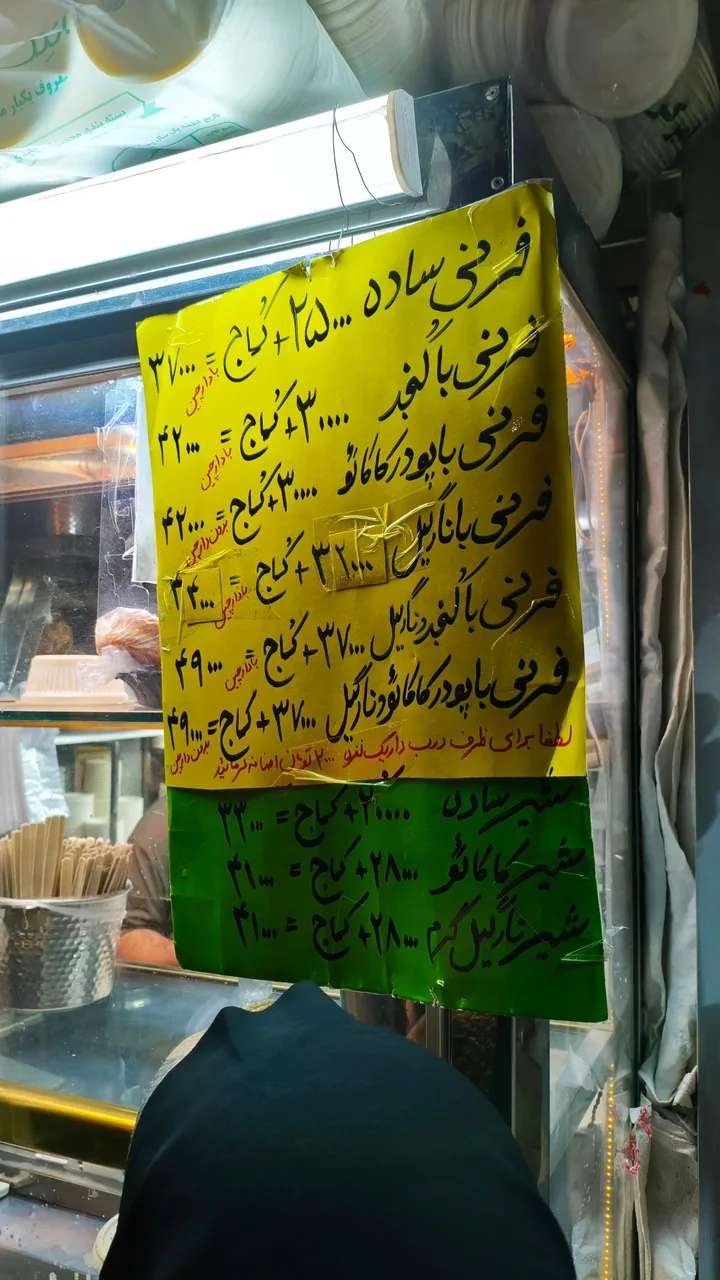 معروف یکبار
بسته بندی محصو
فرنی ساده ۲۵۰۰۰ + کُماج = ۳۷۰۰۰
بادارچین
فرنی با کُنجد ۳۰۰۰۰ + کُماج = ۴۲۰۰۰
بادارچین
فرنی با پودر کاکائو ۳۰۰۰۰ + کُماج = ۴۲۰۰۰
بدون دارچین
فرنی با نارگیل ۳۲۰۰۰ + کُماج = ۴۴۰۰۰
بادارچین
فرنی با کُنجد و نارگیل ۳۷۰۰۰ + کُماج = ۴۹۰۰۰
بادارچین
فرنی با پودر کاکائو و نارگیل ۳۷۰۰۰ + کماج = ۴۹۰۰۰
بدون دارچین
لطفا برای ظرف درب دار یک نفره ۲۰۰۰ تومان اضافه فرمائید
شیر ساده ۲۰۰۰۰ + کماج = ۳۳۰۰۰
شیر کاکائو ۲۸۰۰۰ + کماج = ۴۱۰۰۰
شیر نارگیل گرم ۲۸۰۰۰ + کماج = ۴۱۰۰۰